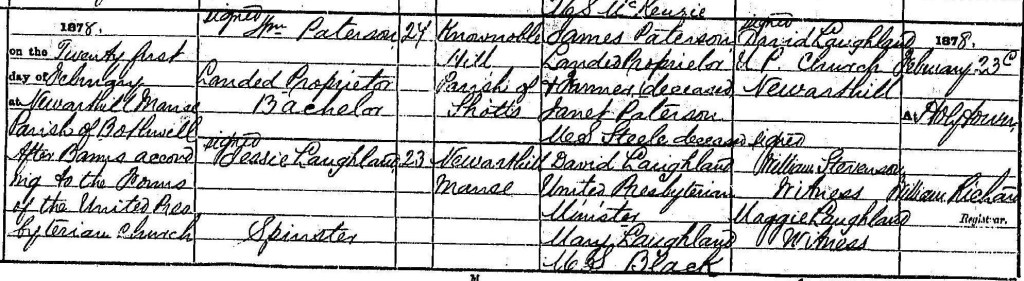 M.S. McKenzie
1878.
on the Twenty first
day of February
at Newarthill Manse
Parish of Bothwell
After Banns accord
ing to the Forms
of the United Pres
byterian Church
signed
Wm Paterson
Landed Proprietor
Bachelor
signed
Jeasie Laughland
Spinster
24
23
Knownoble
Hill
Parish of
Shotts
Newarthill
Manse
James Paterson
Landed Proprietor
& Farmer (deceased
Janet Paterson
M.S. Steele deceased
David Laughland
United Presbyterian
Minister
Mary Laughland
M.S. Black
signed
David Laughland
U P Church
Newarthill
signed
William Stevenson
Witness
Maggie Laughland
Witness
1878.
February 23d
At Holytown
William Richard
Registrar.
M